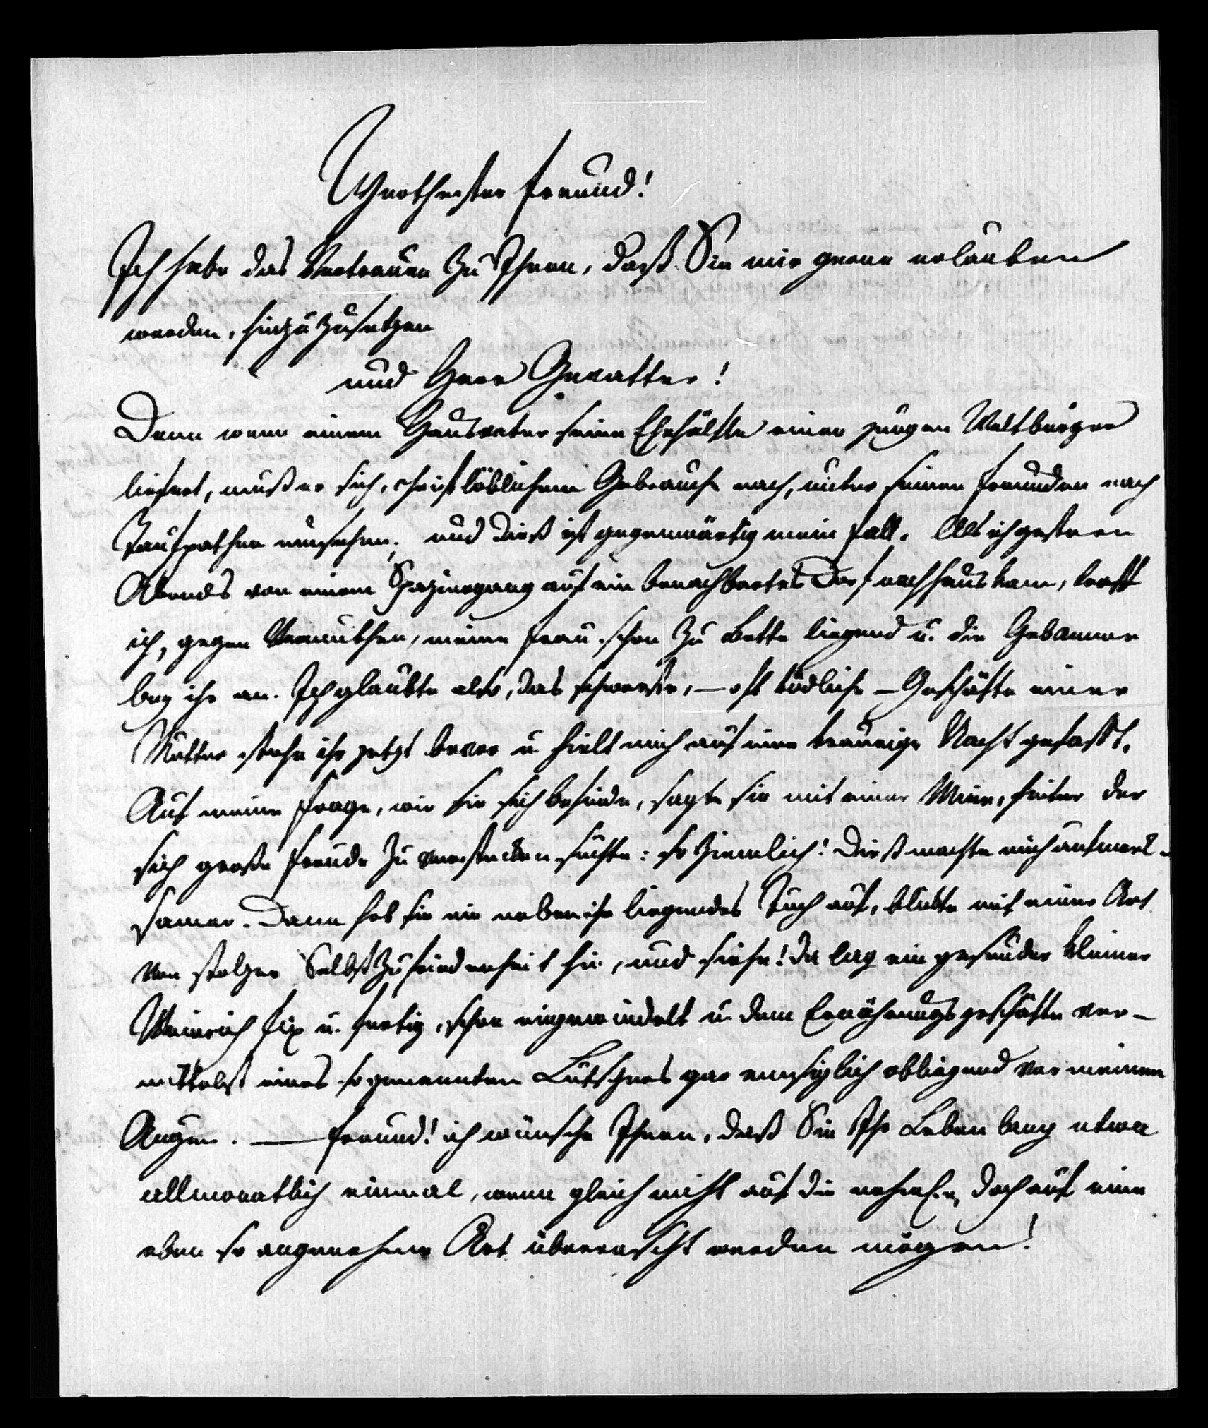 Werthester Freund!
Ich habe das Vertrauen zu Ihnen, daß Sie mir gerne erlauben
werden, hinzuzusetzen
und Herr Gevatter!
Denn wenn einem Hausvater seine Ehehälfte einen jungen Weltbürger
liefert, muß er sich, christlöblichem Gebrauch nach, unter seinen Freunden nach
Taufpathen umsehen; und dieß ist gegenwärtig mein Fall. Als ich gestern
Abends von einem Spaziergang auf ein benachbartes Dorf nach Haus kam, traff
ich, gegen Vermuthen, meine Frau schon zu Bette liegend u. die Hebamme
bey ihr an. Ich glaubte also, das schwerste, – oft tödliche – Geschäfte einer
Mutter stehe ihr jetzt bevor u. hielt mich auf eine traurige Nacht gefaßt.
Auf meine Frage, wie sie sich befinde, sagte sie mit einer Mine, hinter der
sich große Freude zu verstecken suchte: so ziemlich! Dieß machte mich aufmerk-
samer. Dann hob sie ein neben ihr liegendes Tuch auf, blickte mit einer Art
von stolzer Selbstzufriedenheit hin, und siehe! da lag ein gesunder kleiner
Weinrich fix u. fertig, schon eingewindelt u. dem Ernährungsgeschäfte ver-
mittelst eines sogenannten Lutschers gar emsiglich obliegend vor meinen
Augen. — Freund! ich wünsche Ihnen, daß Sie Ihr Leben lang etwa
allmonatlich einmal, wenn gleich nicht auf die nehmliche, doch auf eine
eben so angenehme Art überrascht werden mögen!